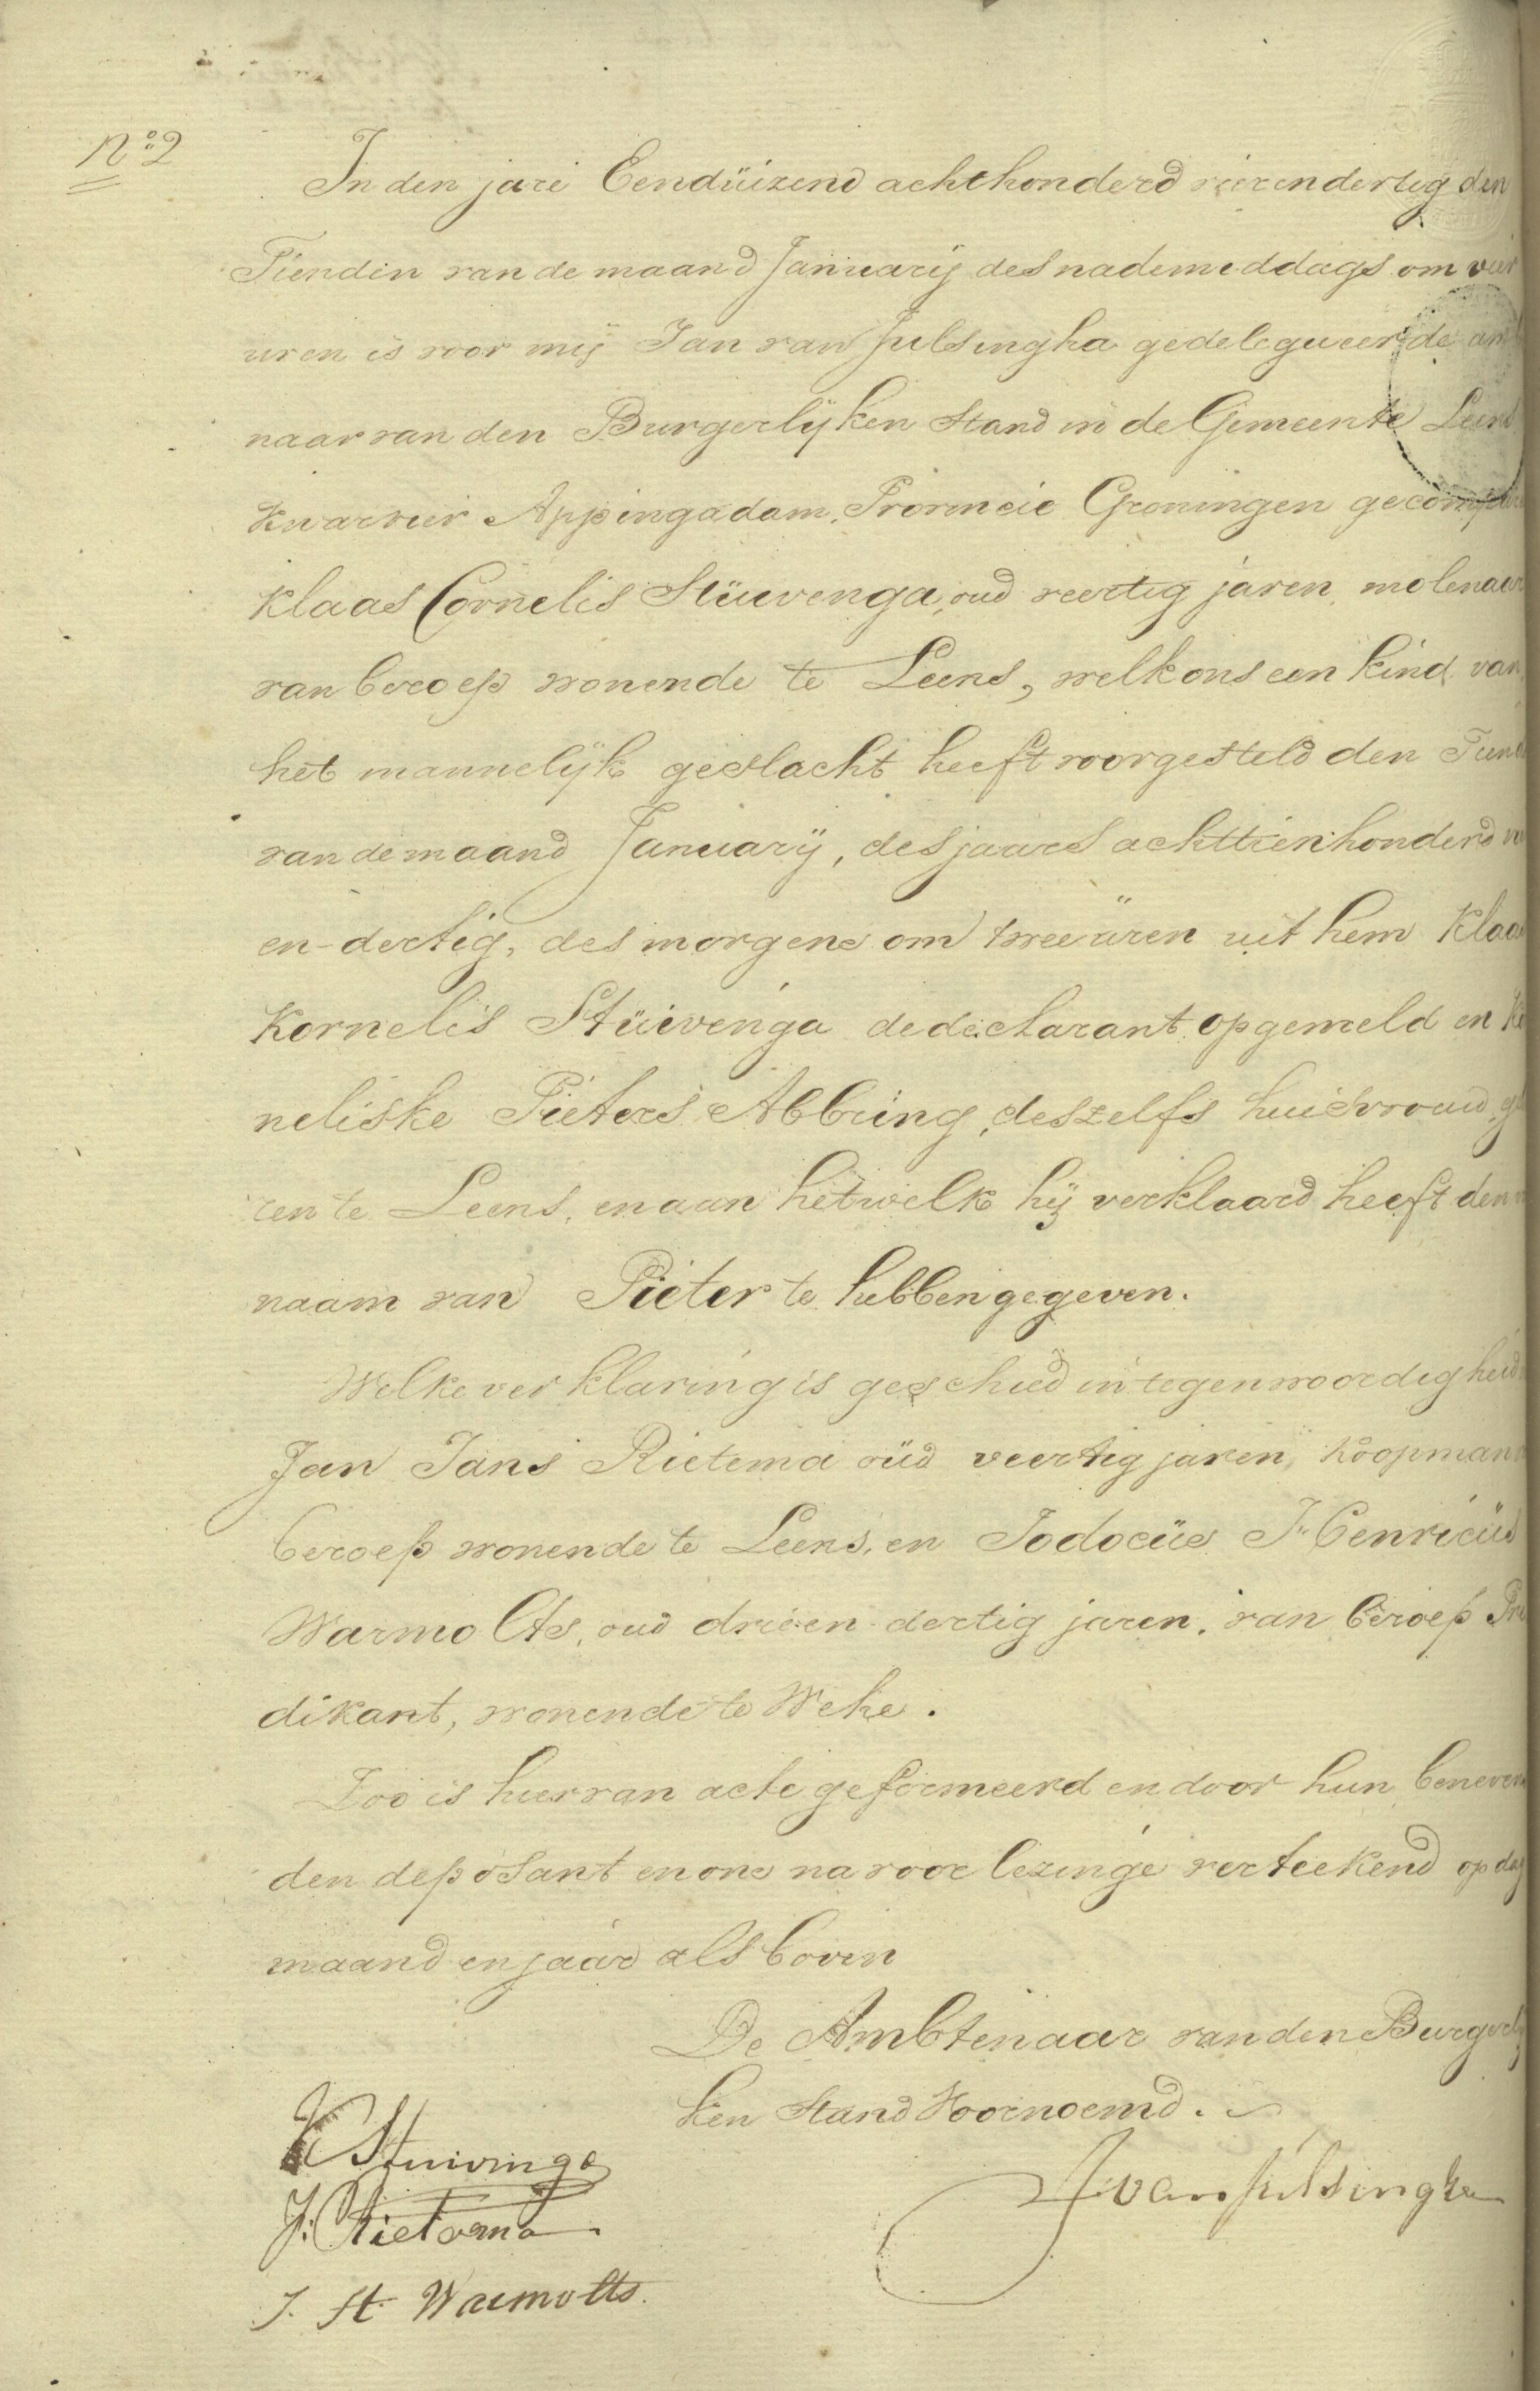 No. 2
In den jare Eenduizend achthonderd vierendertig den
Tienden van de maand January des nademiddags om vier
uren is voor mij Jan van Julsingha gedelegueerde am
naar van den Burgerlyken Stand in de Gemeente Leens
Kwartier Appingadam, Provincie Groningen gecompar
Klaas Cornelis Stüivenga, oud veertig jaren, molenaar
van beroep wonende te Leens, welk ons een kind van
het mannelijk geslacht heeft voorgesteld den Tiend
van de maand January, des jaars achttienhonderd
en dertig, des morgens om twee üren uit hem Klaas
Kornelis Stüivenga de declarant opgemeld en
neliske Pieters Abbring, deszelfs huisvrouw,
ren te Leens, en aan hetwelk hij verklaard heeft den
naam van Pieter te hebben gegeven.
Welke verklaring is geschied in tegenwoordigheid
Jan Jans Rietema oüd veertig jaren, Koopman
beroep wonende te Leens, en Jodocüs Henricüs
Warmolts, oud drieen dertig jaren, van beroep Pre
dikant, wonende te Wehe.
Zoo is hiervan acte geformeerd en door hun beneven
den deposant en ons na voorlezinge verteekend op dag
maand en jaar als boven
De Ambtenaar van den Burgerly
ken Stand Voornoemd.
K Stuivinga
J. Rietema
J. H. Warmolts.
J van Julsingha